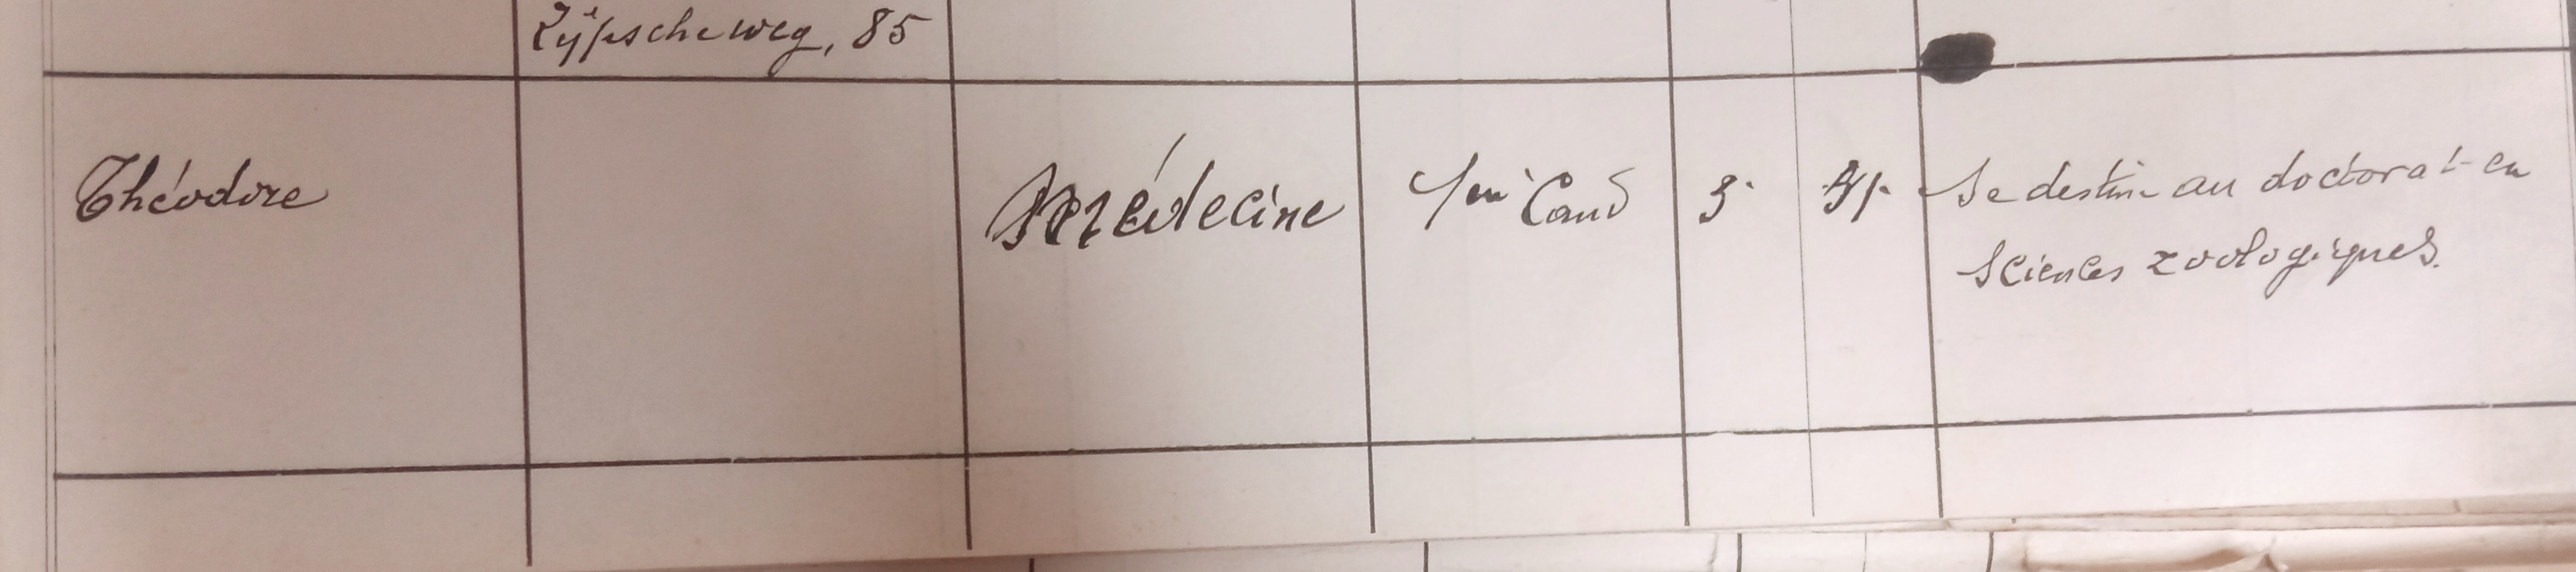 Zijpscheweg, 85
Théodore
Médecine
1re Cand
3
Se destine au doctorat en
sciences zoologiques.